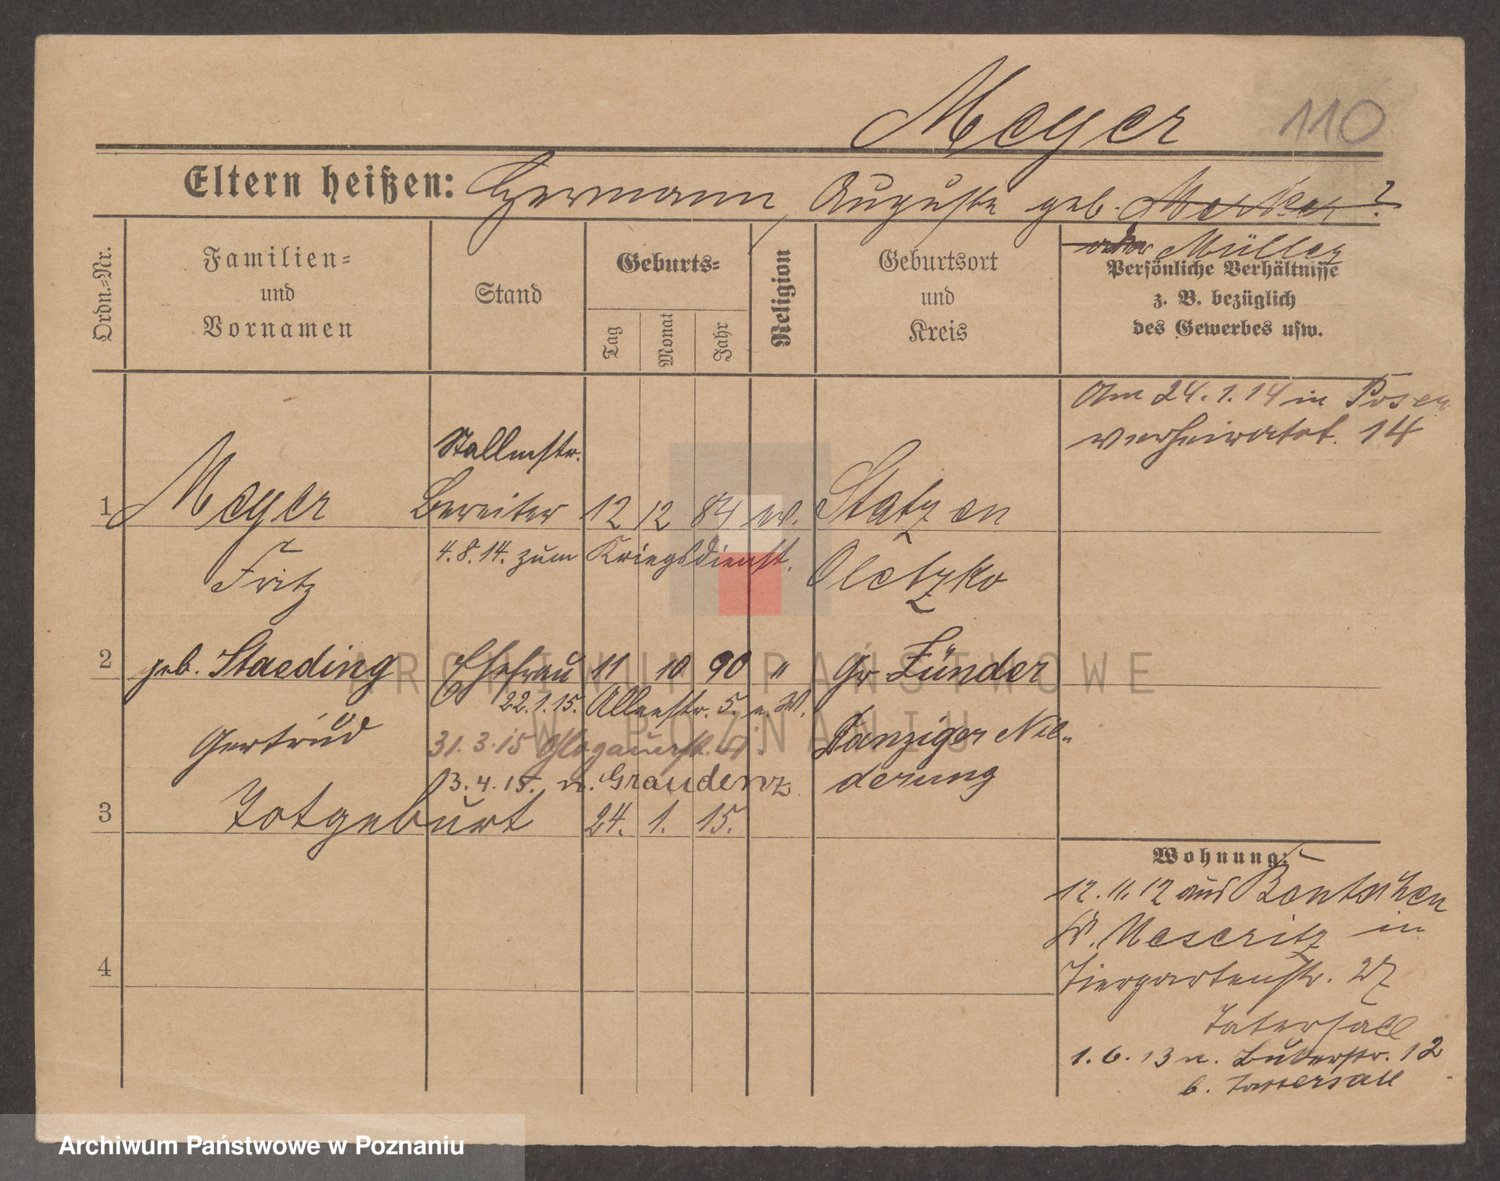 Meyer 110
Eltern heißen: Hermann, Auguste geb. Merker?
oder Müller
Ordn.-Nr.
Familien=
und
Vornamen
Stand
Geburts=
Tag
Monat
Jahr
Religion
Geburtsort
und
Kreis
Persönliche Verhältnisse
z. B. bezüglich
des Gewerbes usw.
Am 24.1.14 in Posen
verheiratet. 14
Stallmstr.
1 Meyer Bereiter 12 12 84 ev. Statzen
4.8.14. zum Kriegsdienst.
Fritz Oletzko
2 geb. Staeding Ehefrau 11 10 90 " Gr Zünder
22.1.15. Allenstr. 5. n. W.
Gertrud Danziger Nie-
31.3.15 Glogauerstr.
13.4.15. n. Graudenz derung
3 Totgeburt 24. 1. 15.
4
Wohnung:
12.11.12 aus Bentschen
Kr. Meseritz in
Tiergartenstr. 27
Tatersall
1.6.13 n. Buderstr. 12
b. Tattersall
ARCHIWUM PAŃSTWOWE
W POZNANIU
Archiwum Państwowe w Poznaniu